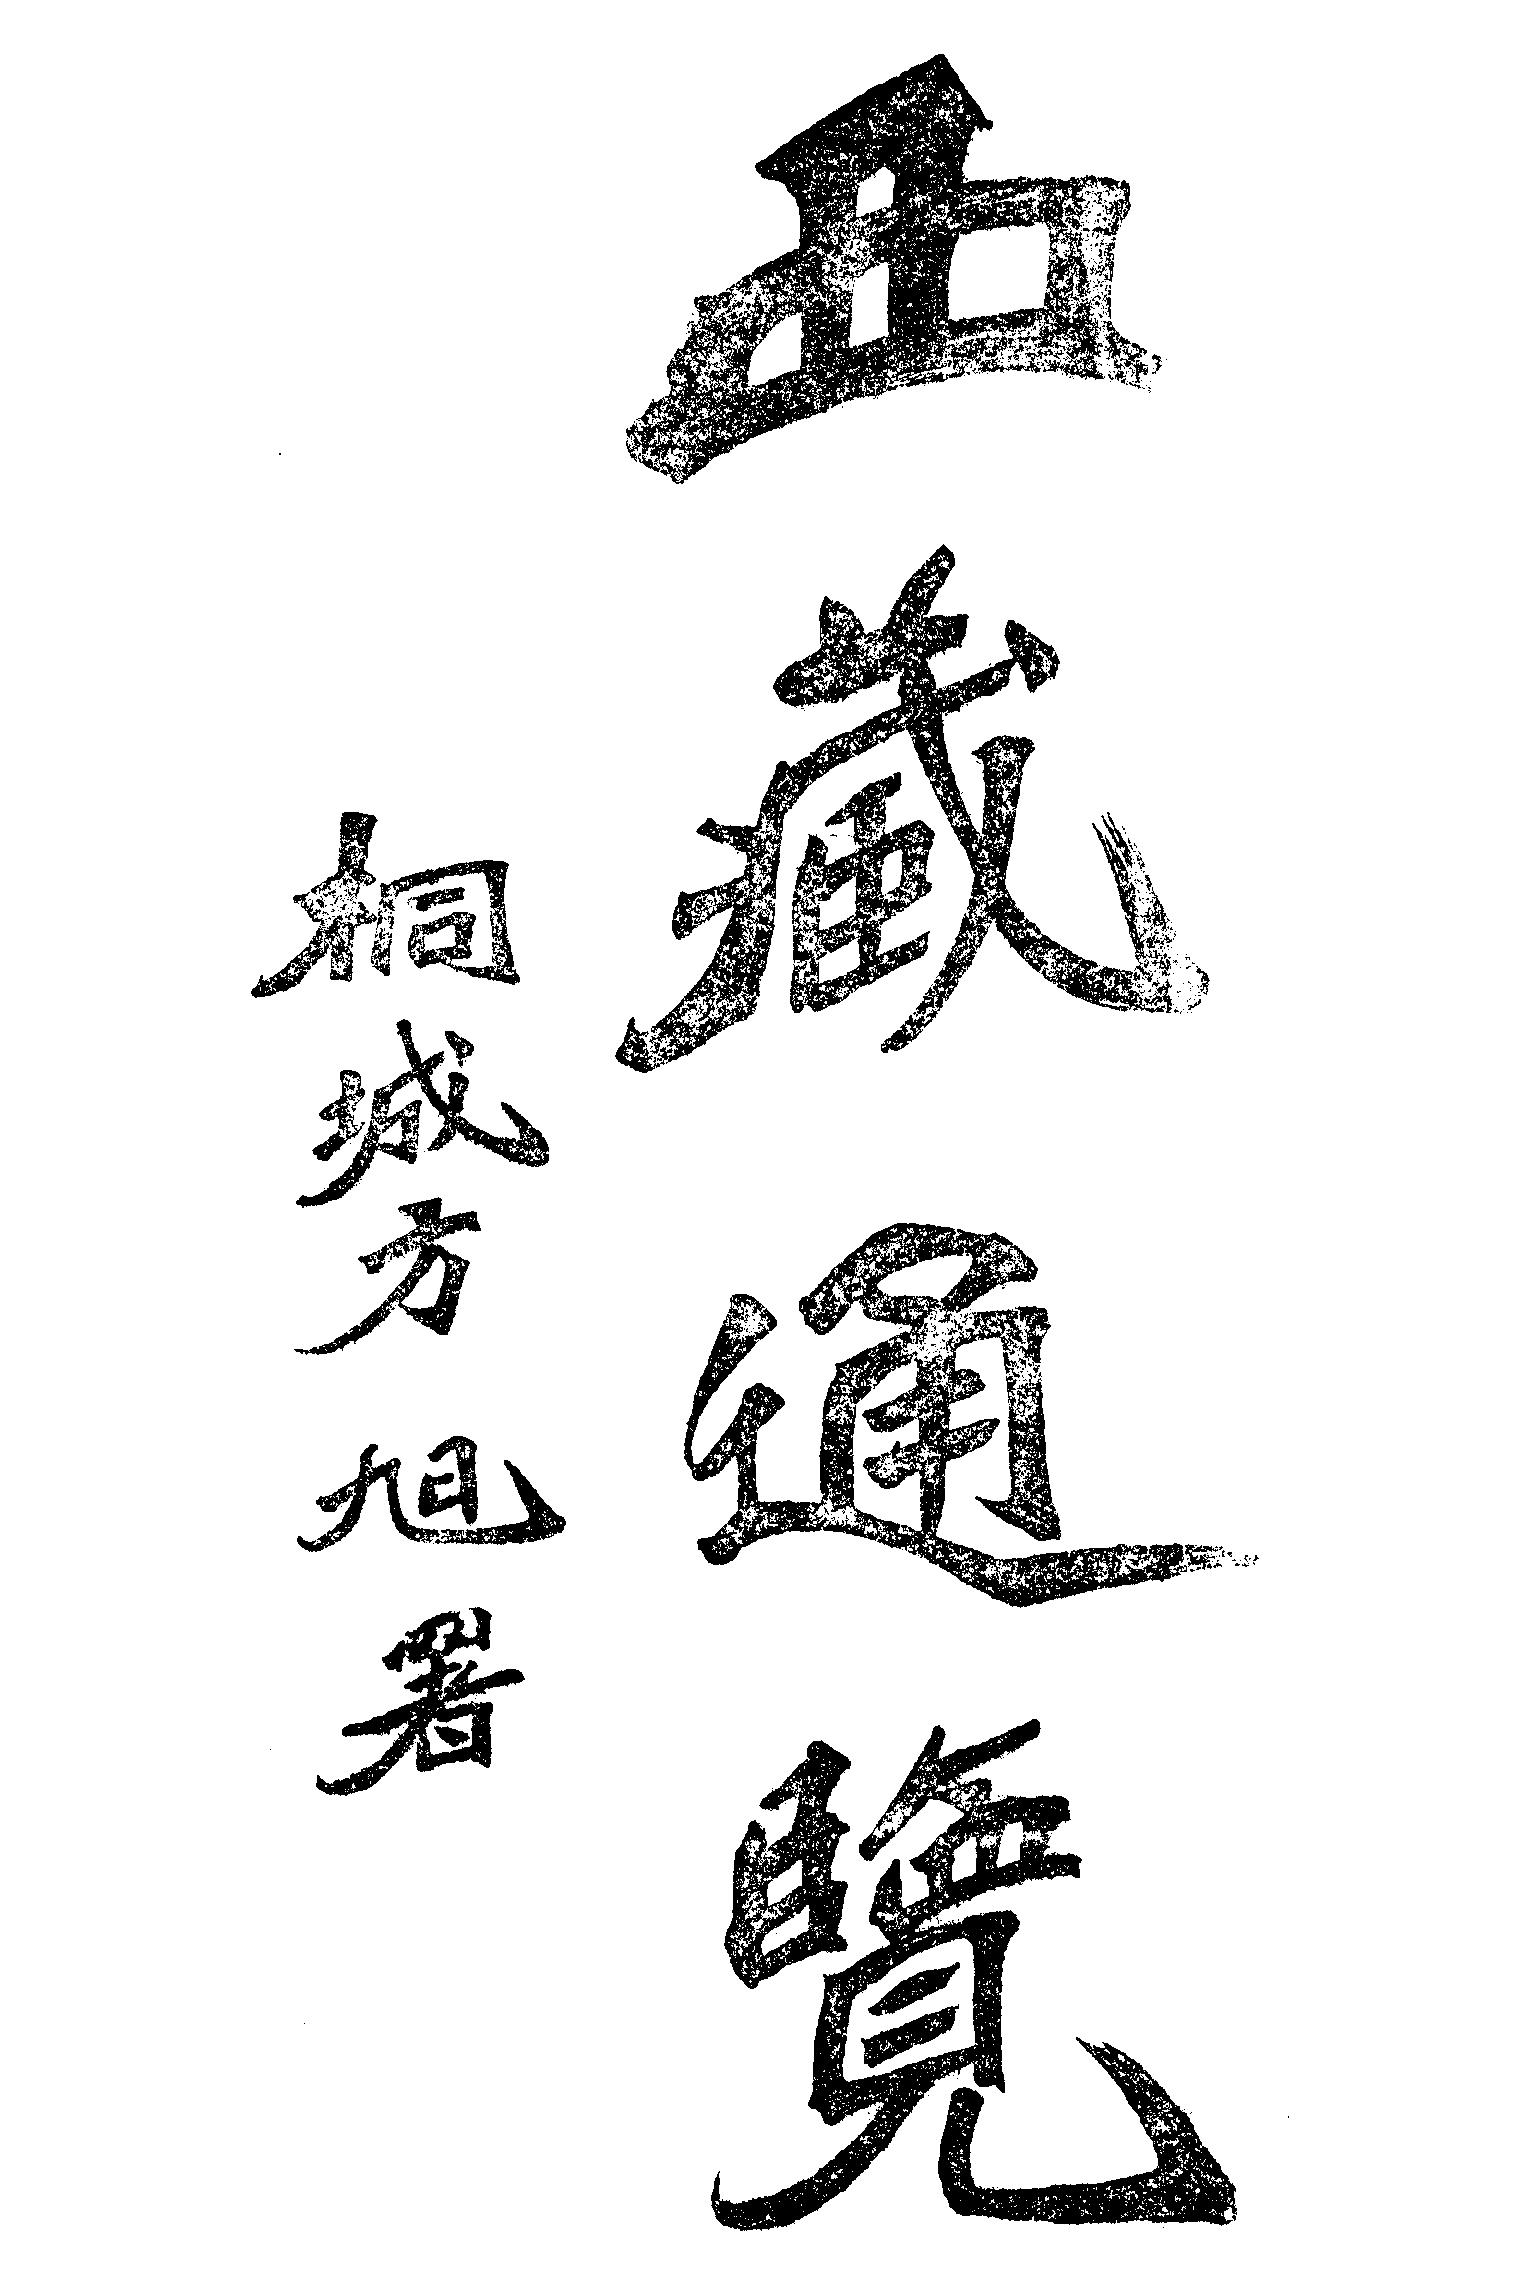 西藏通覽
桐城方旭署